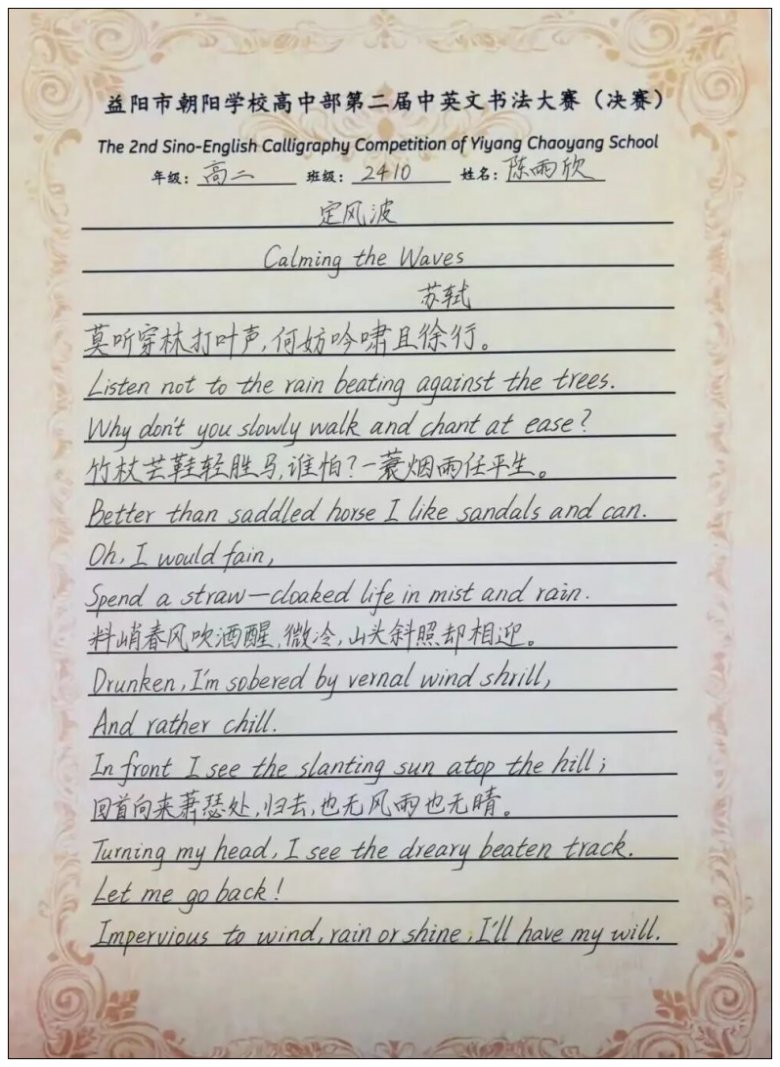 益阳市朝阳学校高中部第二届中英文书法大赛（决赛）
The 2nd Sino-English Calligraphy Competition of Yiyang Chaoyang School
年级：高二 班级：2410 姓名：陈雨欣
定风波
Calming the Waves
苏轼
莫听穿林打叶声，何妨吟啸且徐行。
Listen not to the rain beating against the trees.
Why don't you slowly walk and chant at ease?
竹杖芒鞋轻胜马，谁怕？一蓑烟雨任平生。
Better than saddled horse I like sandals and can.
Oh, I would fain,
Spend a straw—cloaked life in mist and rain.
料峭春风吹酒醒，微冷，山头斜照却相迎。
Drunken, I'm sobered by vernal wind shrill,
And rather chill.
In front I see the slanting sun atop the hill;
回首向来萧瑟处，归去，也无风雨也无晴。
Turning my head, I see the dreary beaten track.
Let me go back!
Impervious to wind, rain or shine, I'll have my will.